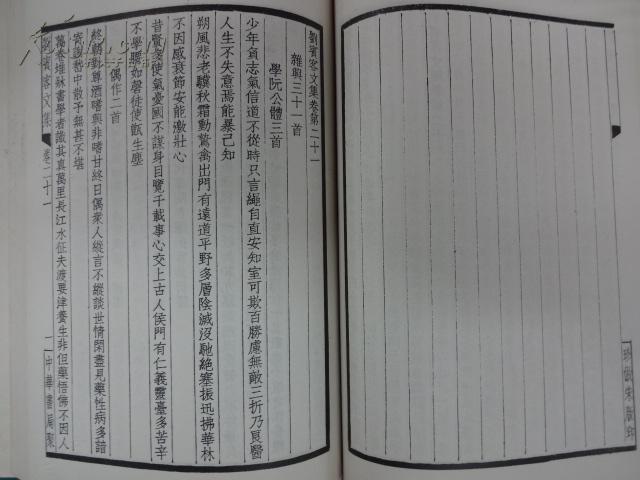 劉賓客文集卷第二十一
雜興三十一首
學阮公體三首
少年負志氣信道不從時只言繩自直安知室可欺百勝慮無敵三折乃良醫
人生不失意焉能暴己知
朔風悲老驥秋霜動鷙禽出門有遠道平野多層陰滅沒馳絕塞振迅拂華林
不因感衰節安能激壯心
昔賢多使氣憂國不謀身目覽千載事心交上古人侯門有仁義靈臺多苦辛
不學腰如磬徒使甑生塵
偶作二首
終朝對尊酒嗜興非嗜甘終日偶衆人縱言不縱談世情閑盡見藥性病多諳
寄謝嵇中散予無甚不堪
萬卷堆牀書學者識其真萬里長江水征夫渡要津養生非但藥悟佛不因人
劉賓客文集
卷二十一
一
中華書局聚
珍倣宋版印